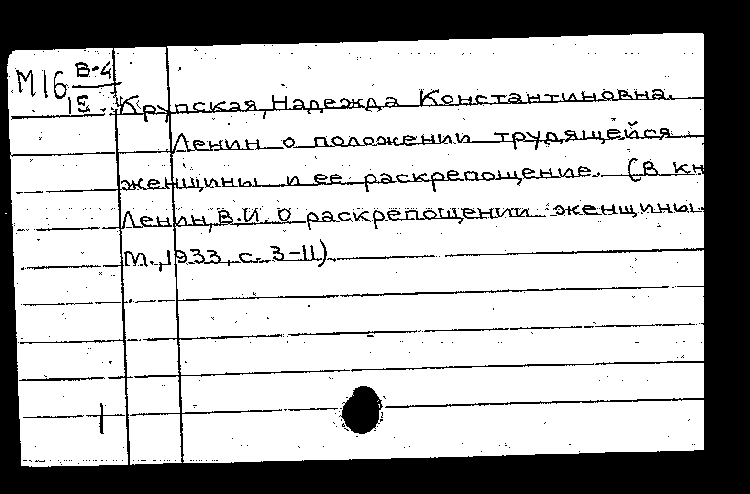 М16 В-4
15.
Крупская, Надежда Константиновна.
Ленин о положении трудящейся
женщины и ее раскрепощение. (В кн
Ленин, В.И. О раскрепощении женщины.
М., 1933, с. 3-11)
1